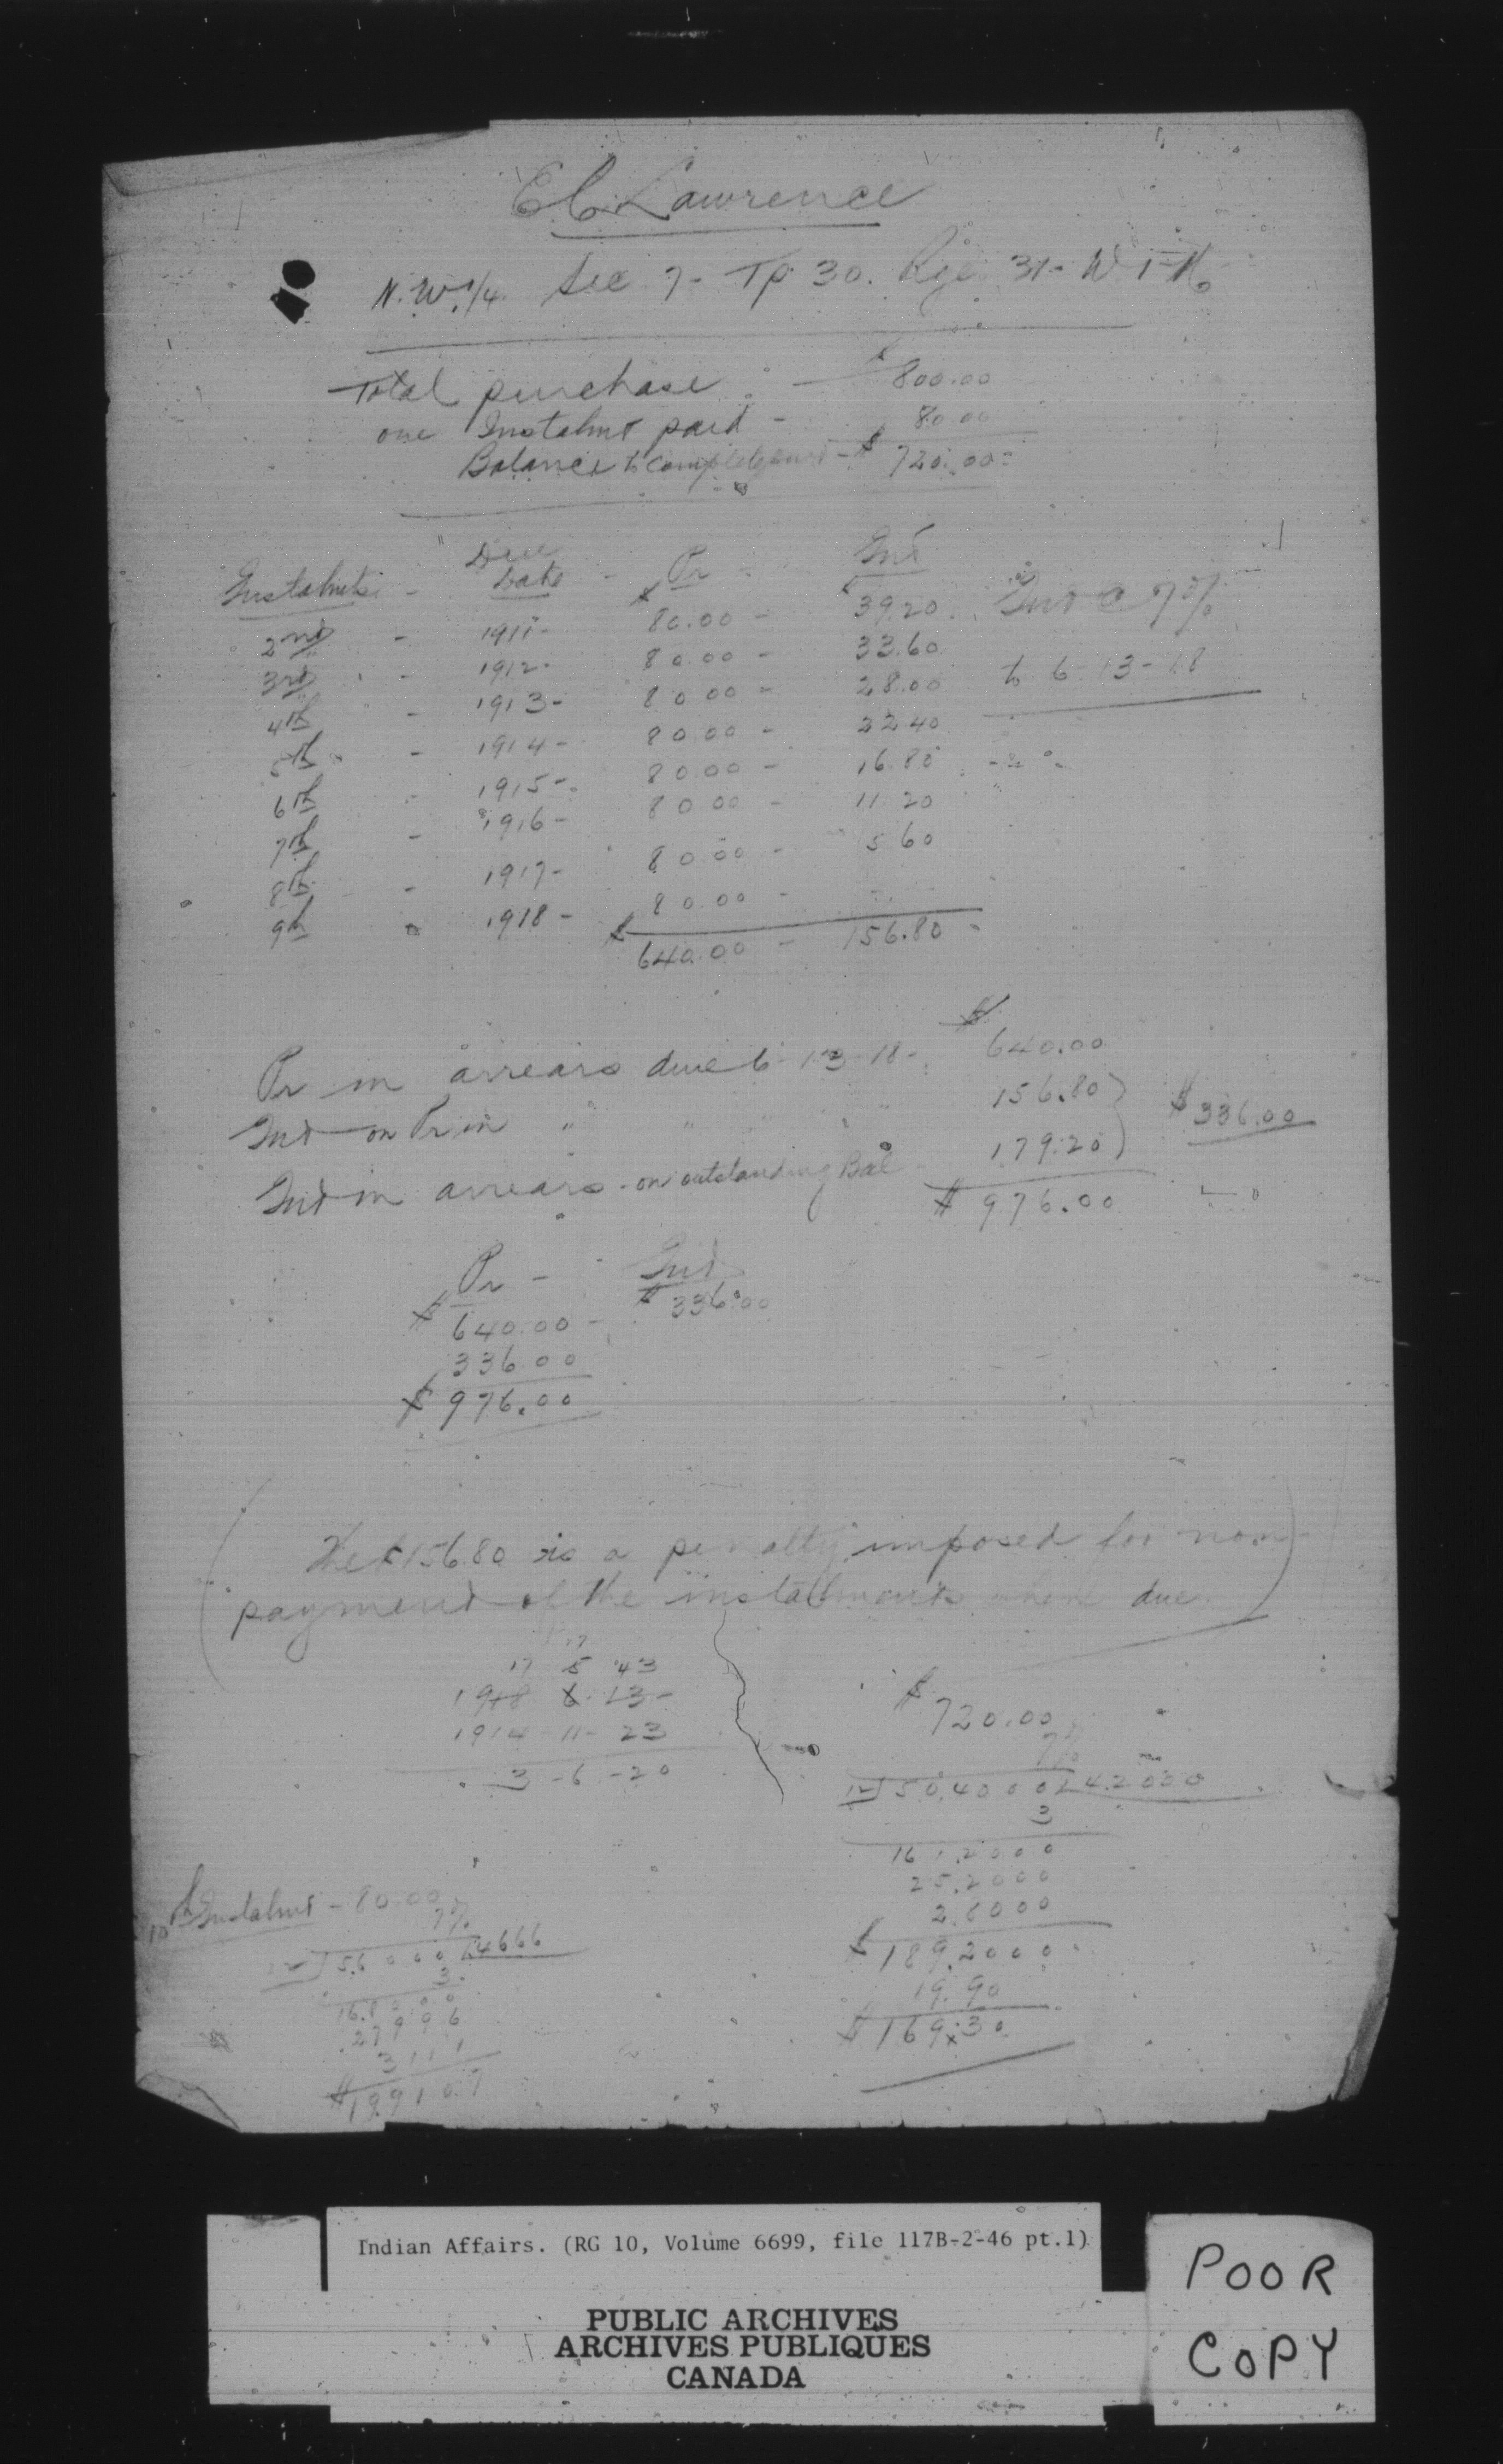 E. C. Lawrence
N.W. 1/4 Sec 7 - Tp 30. Rge 31 - W 1 M
Total purchase - $ 800.00
one Instalmt paid - 80.00
Balance to complete - $ 720.00
Instalmts - Due Date - Pr - Int
2nd - 1911 - $ 80.00 - $ 39.20 Int @ 7%
3rd - 1912 - 80.00 - 33.60
4th - 1913 - 80.00 - 28.00 to 6-13-18
5th - 1914 - 80.00 - 22.40
6th - 1915 - 80.00 - 16.80
7th - 1916 - 80.00 - 11.20
8th - 1917 - 80.00 - 5.60
9th " 1918 - 80.00 -
$ 640.00 - 156.80
Pr in arrears due 6-13-18 - $ 640.00
Int on Prin " " " 156.80 } $ 336.00
Int in arrears - on outstanding Bal - 179.20
$ 976.00
Pr - Int
$ 640.00 - $ 336.00
336.00
$ 976.00
(The $156.80 is a penalty imposed for non-
payment of the installments when due.)
17
17 5 43
1918 6-13-
1914-11-23
3-6-20
$ 720.00
7%
12 ) 50.4000 ( 4.2000
3
161.2000
25.2000
2.8000
$ 189.2000
19.90
$ 169.30
10th Instalmt - 80.00
7%
12 ) 5.6000 ( .4666
3
16.8000
2.7996
3111
$ 19.9107
Indian Affairs. (RG 10, Volume 6699, file 117B-2-46 pt.1)
PUBLIC ARCHIVES
ARCHIVES PUBLIQUES
CANADA
POOR
COPY